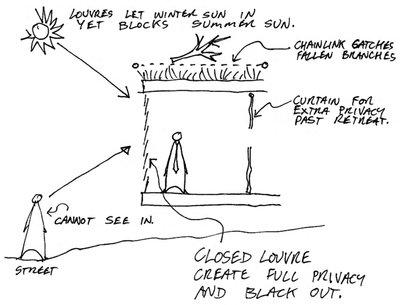 LOUVRES LET WINTER SUN IN
YET BLOCKS SUMMER SUN.
CHAINLINK CATCHES
FALLEN BRANCHES
CURTAIN FOR
EXTRA PRIVACY
PAST RETREAT.
CANNOT SEE IN.
STREET
CLOSED LOUVRE
CREATE FULL PRIVACY
AND BLACK OUT.